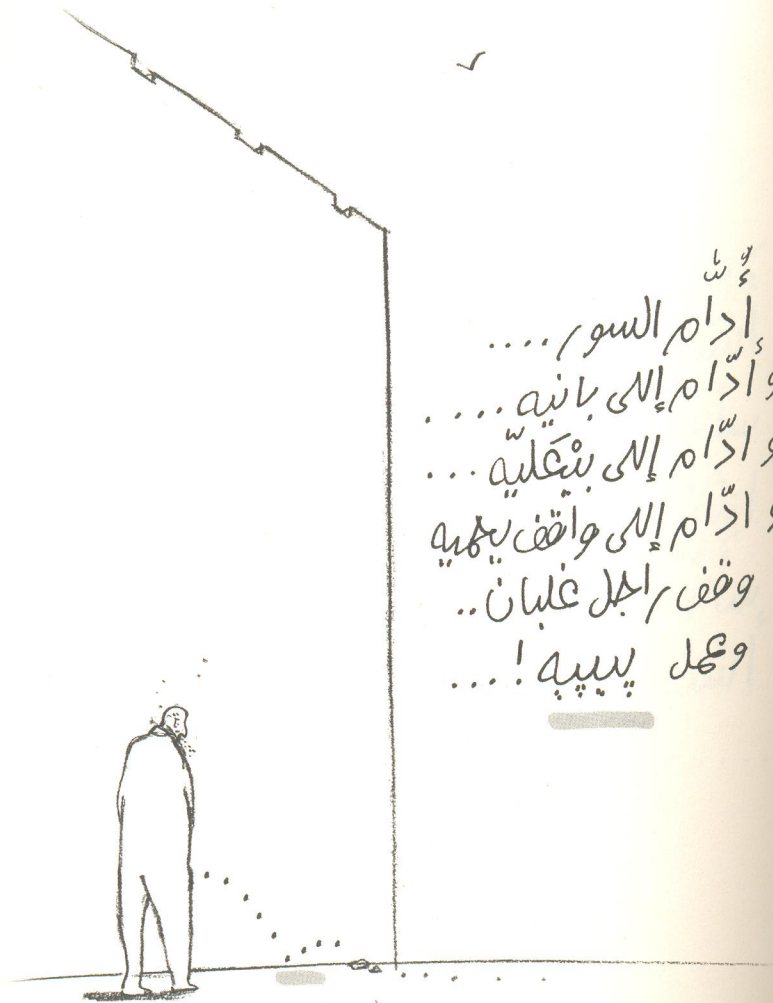 أُدَّام السور....
وأُدّام إللى بانيه....
و ادّام إللى بيْعَليّه...
و ادّام إللى واقف يحميه
وقف راجل غلبان..
وعمل پيپيه!...